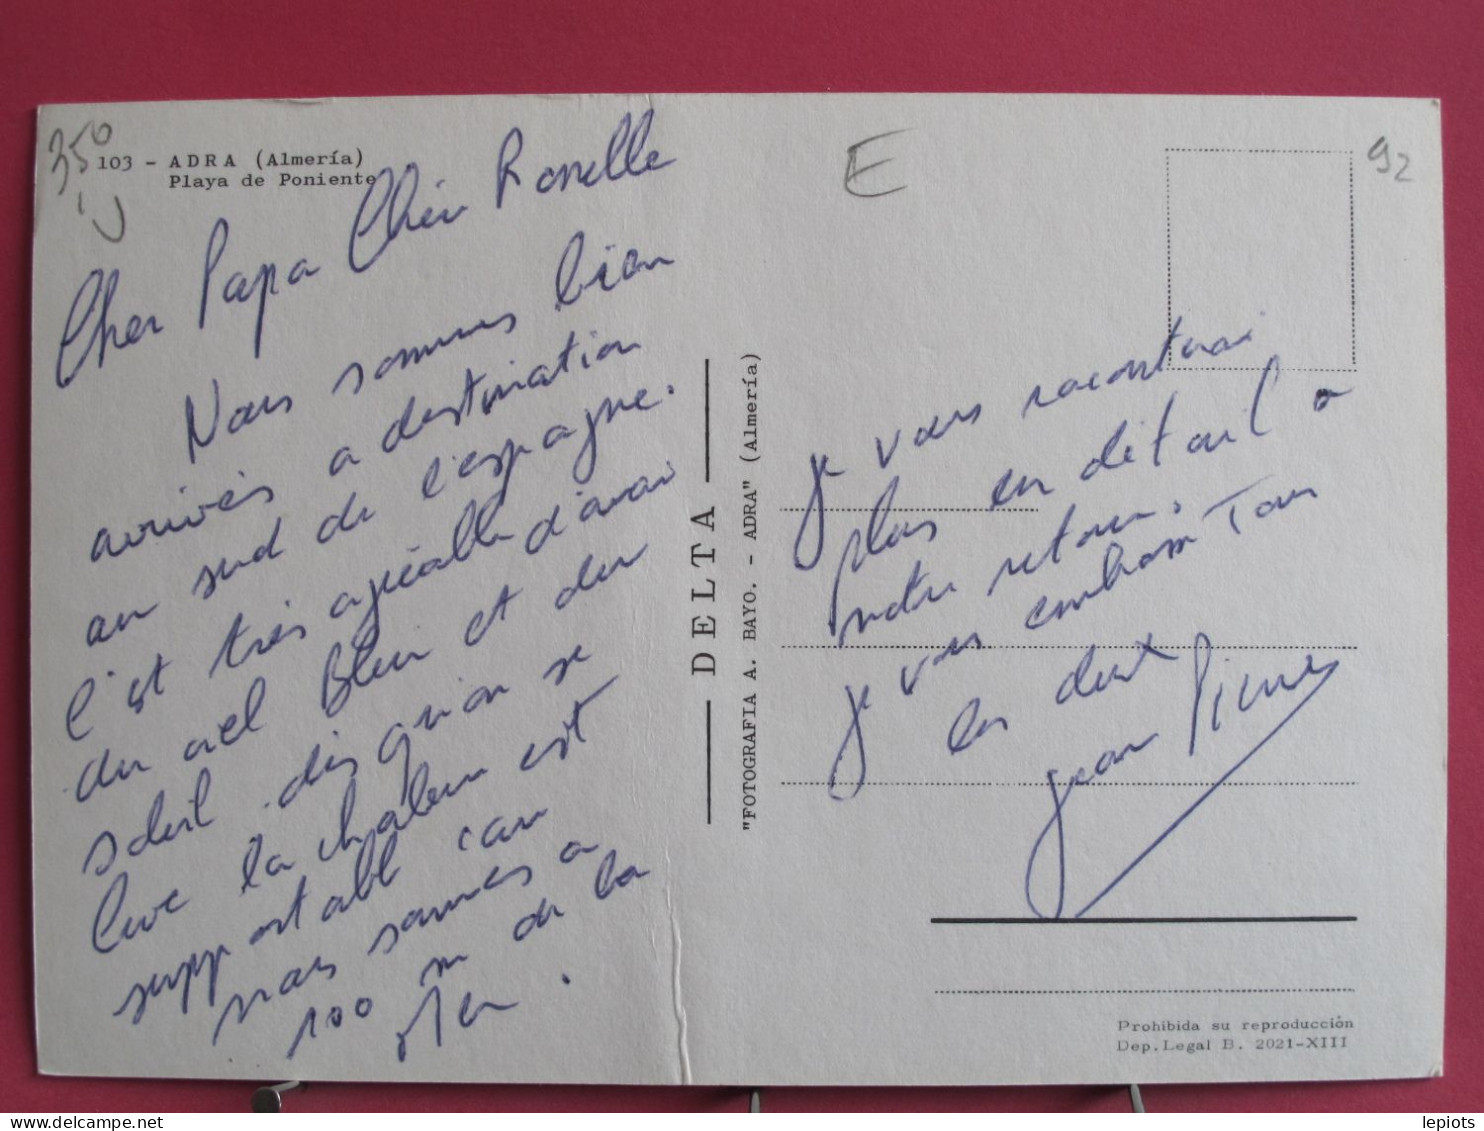 350
103 - ADRA (Almería)
Playa de Poniente
E
92
Cher Papa Chèr Roselle
Nous sommes bien
arrivés a destination
au sud de l'espagne.
C'est très agréable d'avoir
du ciel Bleu et du
soleil. dis qu'on se
lève la chaleur est
supportable car
nous sommes a
100 m de la
Mer.
DELTA
"FOTOGRAFIA A. BAYO. - ADRA" (Almería)
je vous raconterai
plus en détail a
notre retour.
je vous embrasse Tous
les deux
jean Pierre
Prohibida su reproducción
Dep. Legal B. 2021-XIII
lepiots